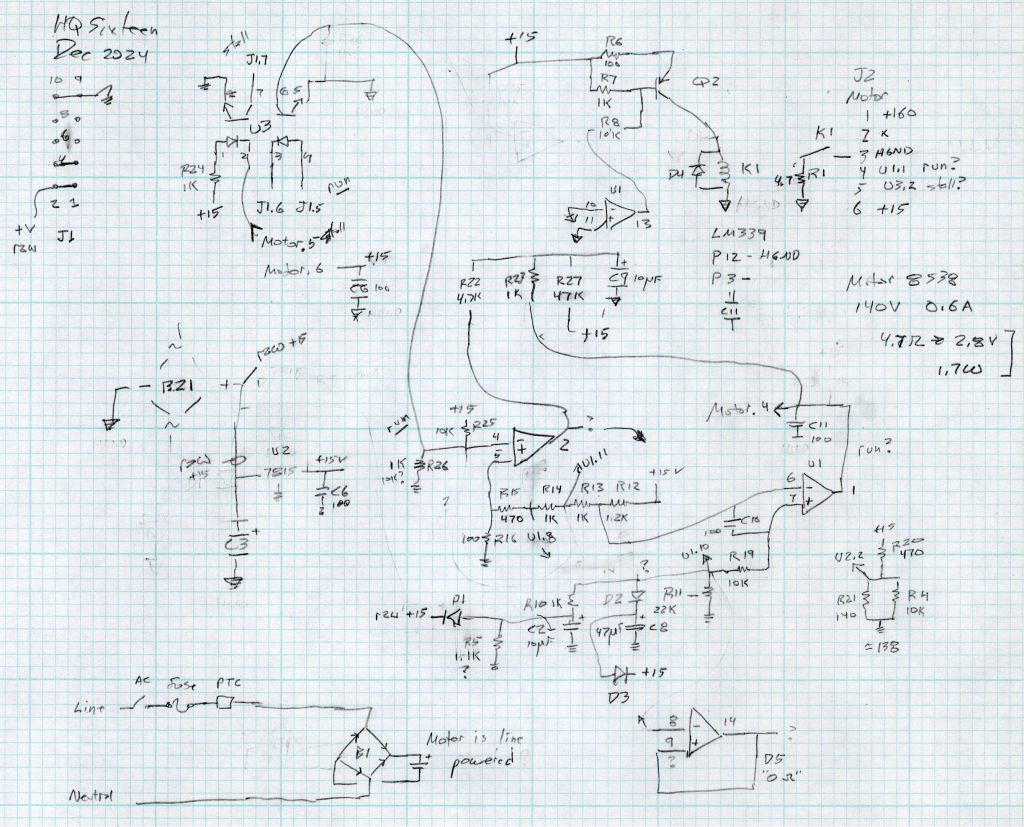 HQ Sixteen
Dec 2024
10 9
8
6
4
2 1
+V
raw
J1
stall
J1.7
8 7
6 5
U3
1 2 3 4
R24
1K
+15
J1.6 J1.5
run
Motor.5 stall
Motor.6
+15
C5 100
+15
R6
100
R7
1K
Q2
R8
10K
D4
K1
HGND
U1
10 -
11 +
13
LM339
P12 - HGND
P3 -
C11
K1
4.7 R1
J2
Motor
1 +160
2 K
3 HGND
4 U1.1 run?
5 U3.2 stall?
6 +15
Motor 8538
140V 0.6A
4.7Ω → 2.8V
1.7W
R22
4.7K
R23
1K
R27
47K
+15
C9 10µF
~
- B21 +
~
raw +5
1
raw
+15
U2
7815
+15V
C6
100
C3
+
run
+15
10K R25
1K
10K?
R26
?
4
5
2
?
R15
470
R14
1K
U1.11
R13
1K
R12
1.2K
+15V
100 R16
U1.8
Motor.4
C11
100
run?
U1
6 -
7 +
1
C10
100
U1.10
R19
10K
R11
22K
?
D2
R10 1K
C2
10µF
47µF
C8
D3
+15
D1
raw +15
R5
1.1K
?
+15
R20
470
U2.2
R21
140
R4
10K
≈138
Line
AC
fuse
PTC
B1
Motor is line
powered!
Neutral
8 -
9 +
?
14
?
D5
"0Ω"